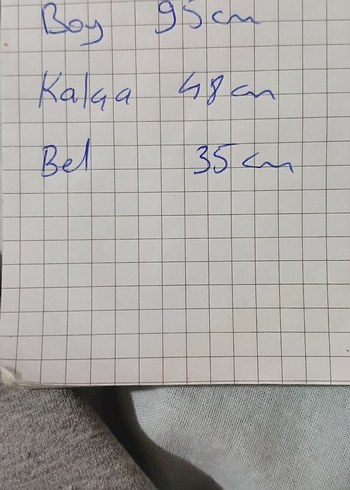 Boy 95 cm
Kalça 48 cm
Bel 35 cm